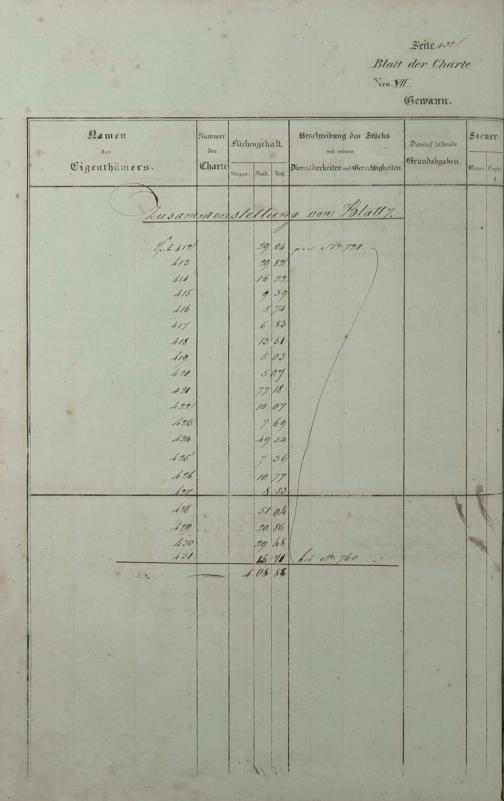 Seite 432
Blatt der Charte
Nro. VII
Gewann.
Namen des Eigenthümers.
Nummer der Charte
Flächengehalt.
Morgen. Ruth. Fuß.
Beschreibung des Stücks mit seinen Dienstbarkeiten und Gerechtigkeiten.
Darauf haftende Grundabgaben.
Steuer
Zusammenstellung von Blatt 7.
412 29 04 No. 721
413 29 82
414 16 22
415 9 39
416 5 74
417 6 83
418 13 51
419 5 03
420 5 07
421 77 18
422 10 07
423 7 69
424 49 54
425 7 36
426 10 77
427 8 33
428 51 04
429 20 86
430 29 48
431 15 71 bis No. 760
4 04 84